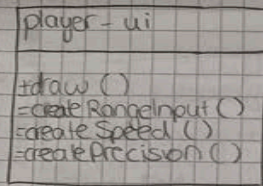 player-ui
+draw()
-createRangeInput()
-createSpeed()
-createPrecision()